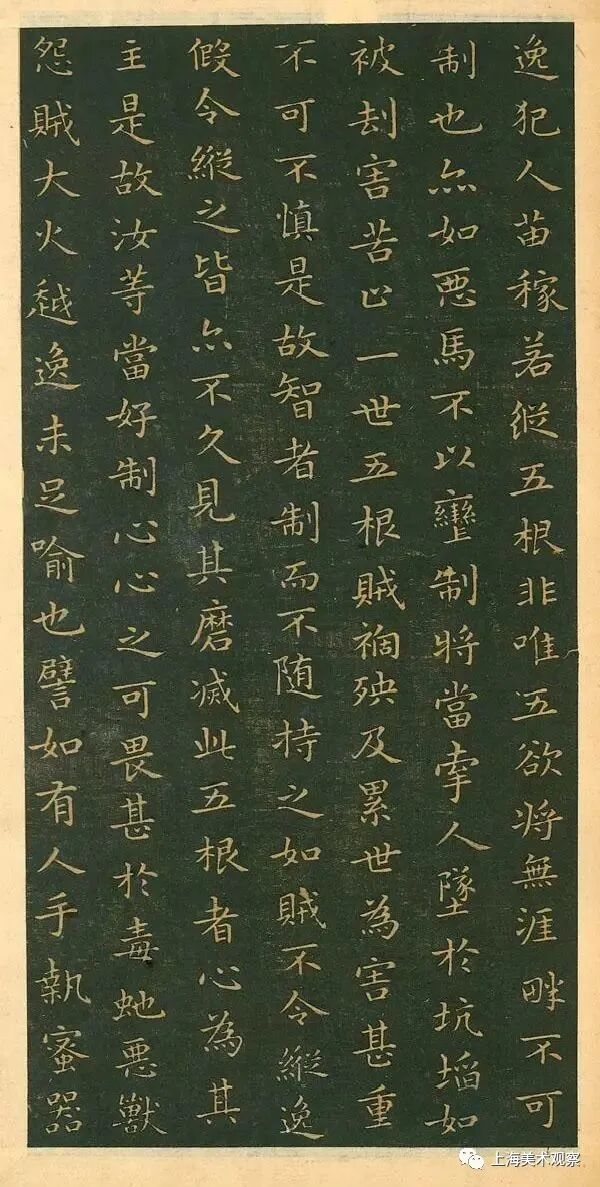 逸犯人苗稼若縱五根非唯五欲將無涯畔不可
制也亦如惡馬不以轡制將當牽人墜於坑埳如
被刦害苦止一世五根賊禍殃及累世為害甚重
不可不慎是故智者制而不随持之如賊不令縱逸
假令縱之皆亦不久見其磨滅此五根者心為其
主是故汝等當好制心心之可畏甚於毒虵惡獸
怨賊大火越逸未足喻也譬如有人手執蜜器
上海美术观察